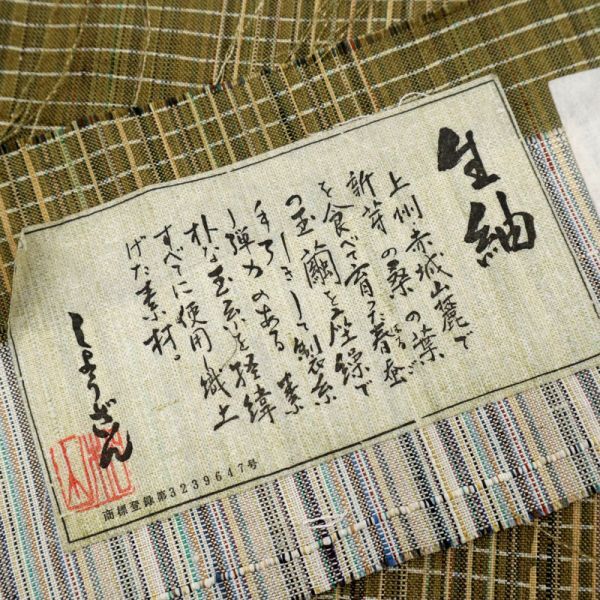 生紬
上州赤城山麓で
新芽の桑の葉
を食べて育った春蚕
の玉繭を座繰で
製糸
弾力のある素
朴な玉糸を経緯
すべてに使用し織上
げた素材。
しょうざん
商標登録第3239647号